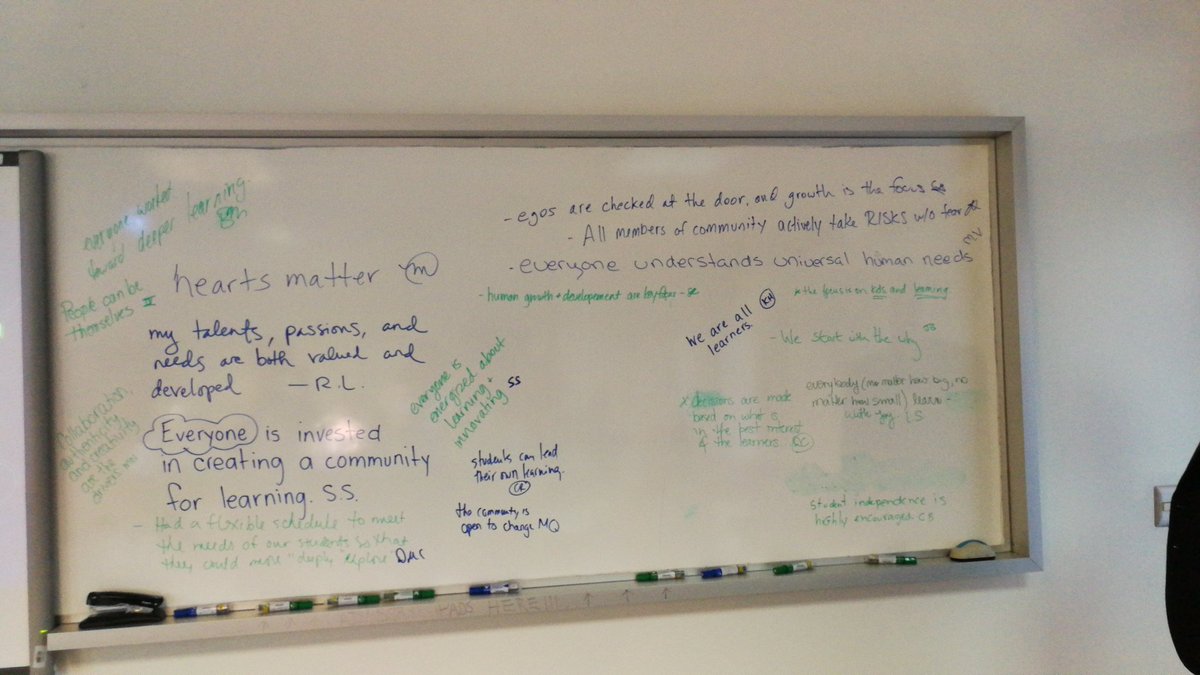 everyone worked
toward deeper learning
People can be
themselves
hearts matter
my talents, passions, and
needs are both valued and
developed — R.L.
Collaboration,
authenticity
and creativity
are the
Everyone is invested
in creating a community
for learning. S.S.
- Had a flexible schedule to meet
the needs of our students so that
they could more "deeply" explore DMC
everyone is
energized about
learning +
innovating SS
students can lead
their own learning.
CR
the community is
open to change MQ
- egos are checked at the door, and growth is the focus
- All members of community actively take RISKS w/o fear
- everyone understands universal human needs MV
- human growth + developement are key focus -
* the focus is on kids and learning
we are all
learners. KH
- We start with the why
* decisions are made
based on what is
in the best interest
of the learners
everybody (no matter how big, no
matter how small) learn
with joy - LS
student independence is
highly encouraged. CB
HERE!!! ↑ ↑ ↑